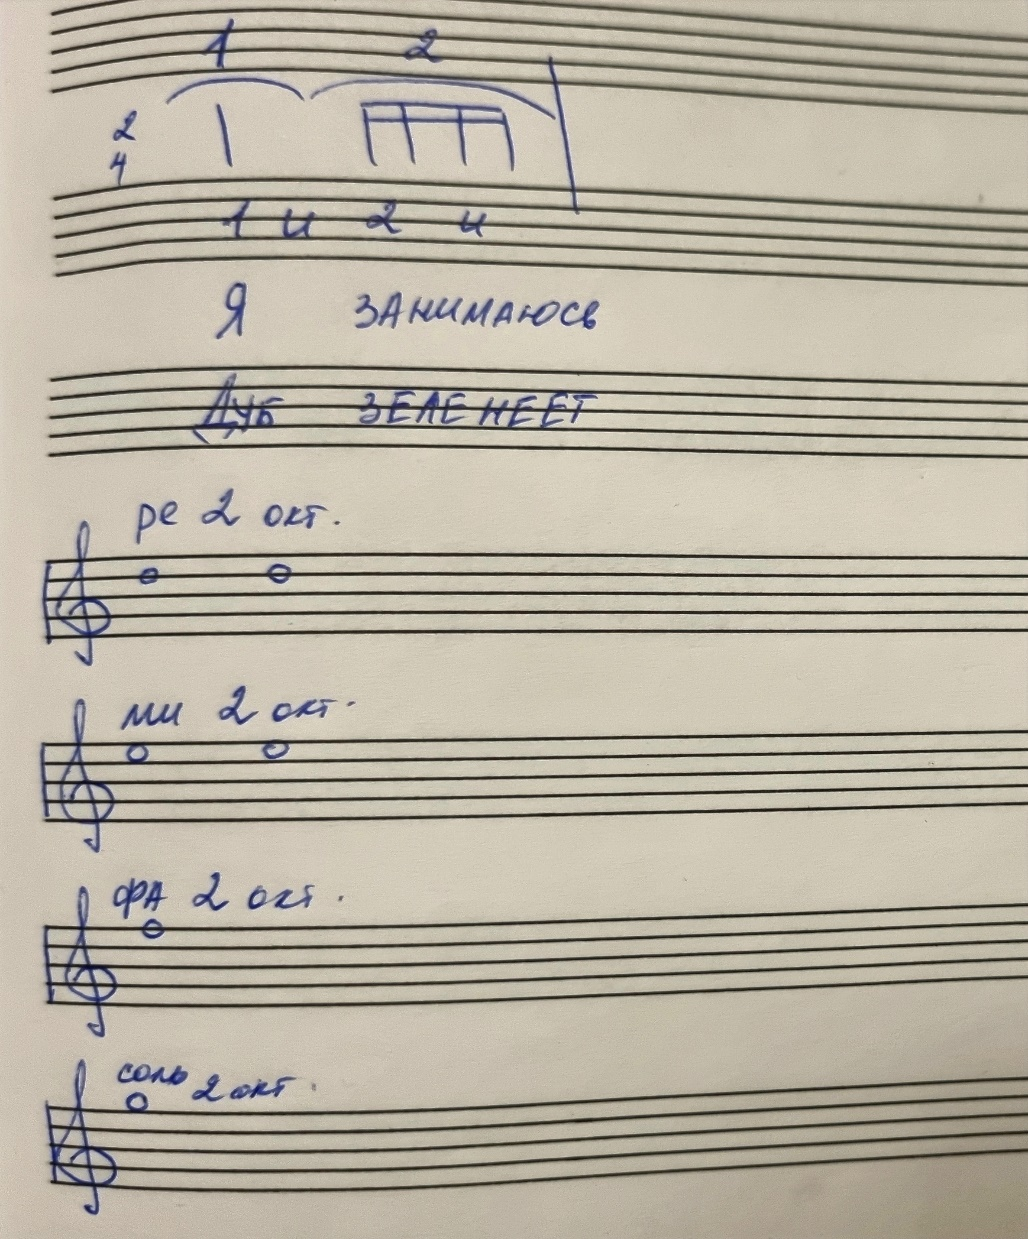 1 2
2
4
1 и 2 и
Я ЗАНИМАЮСЬ
ДУБ ЗЕЛЕНЕЕТ
ре 2 окт.
ми 2 окт.
ФА 2 окт.
соль 2 окт.